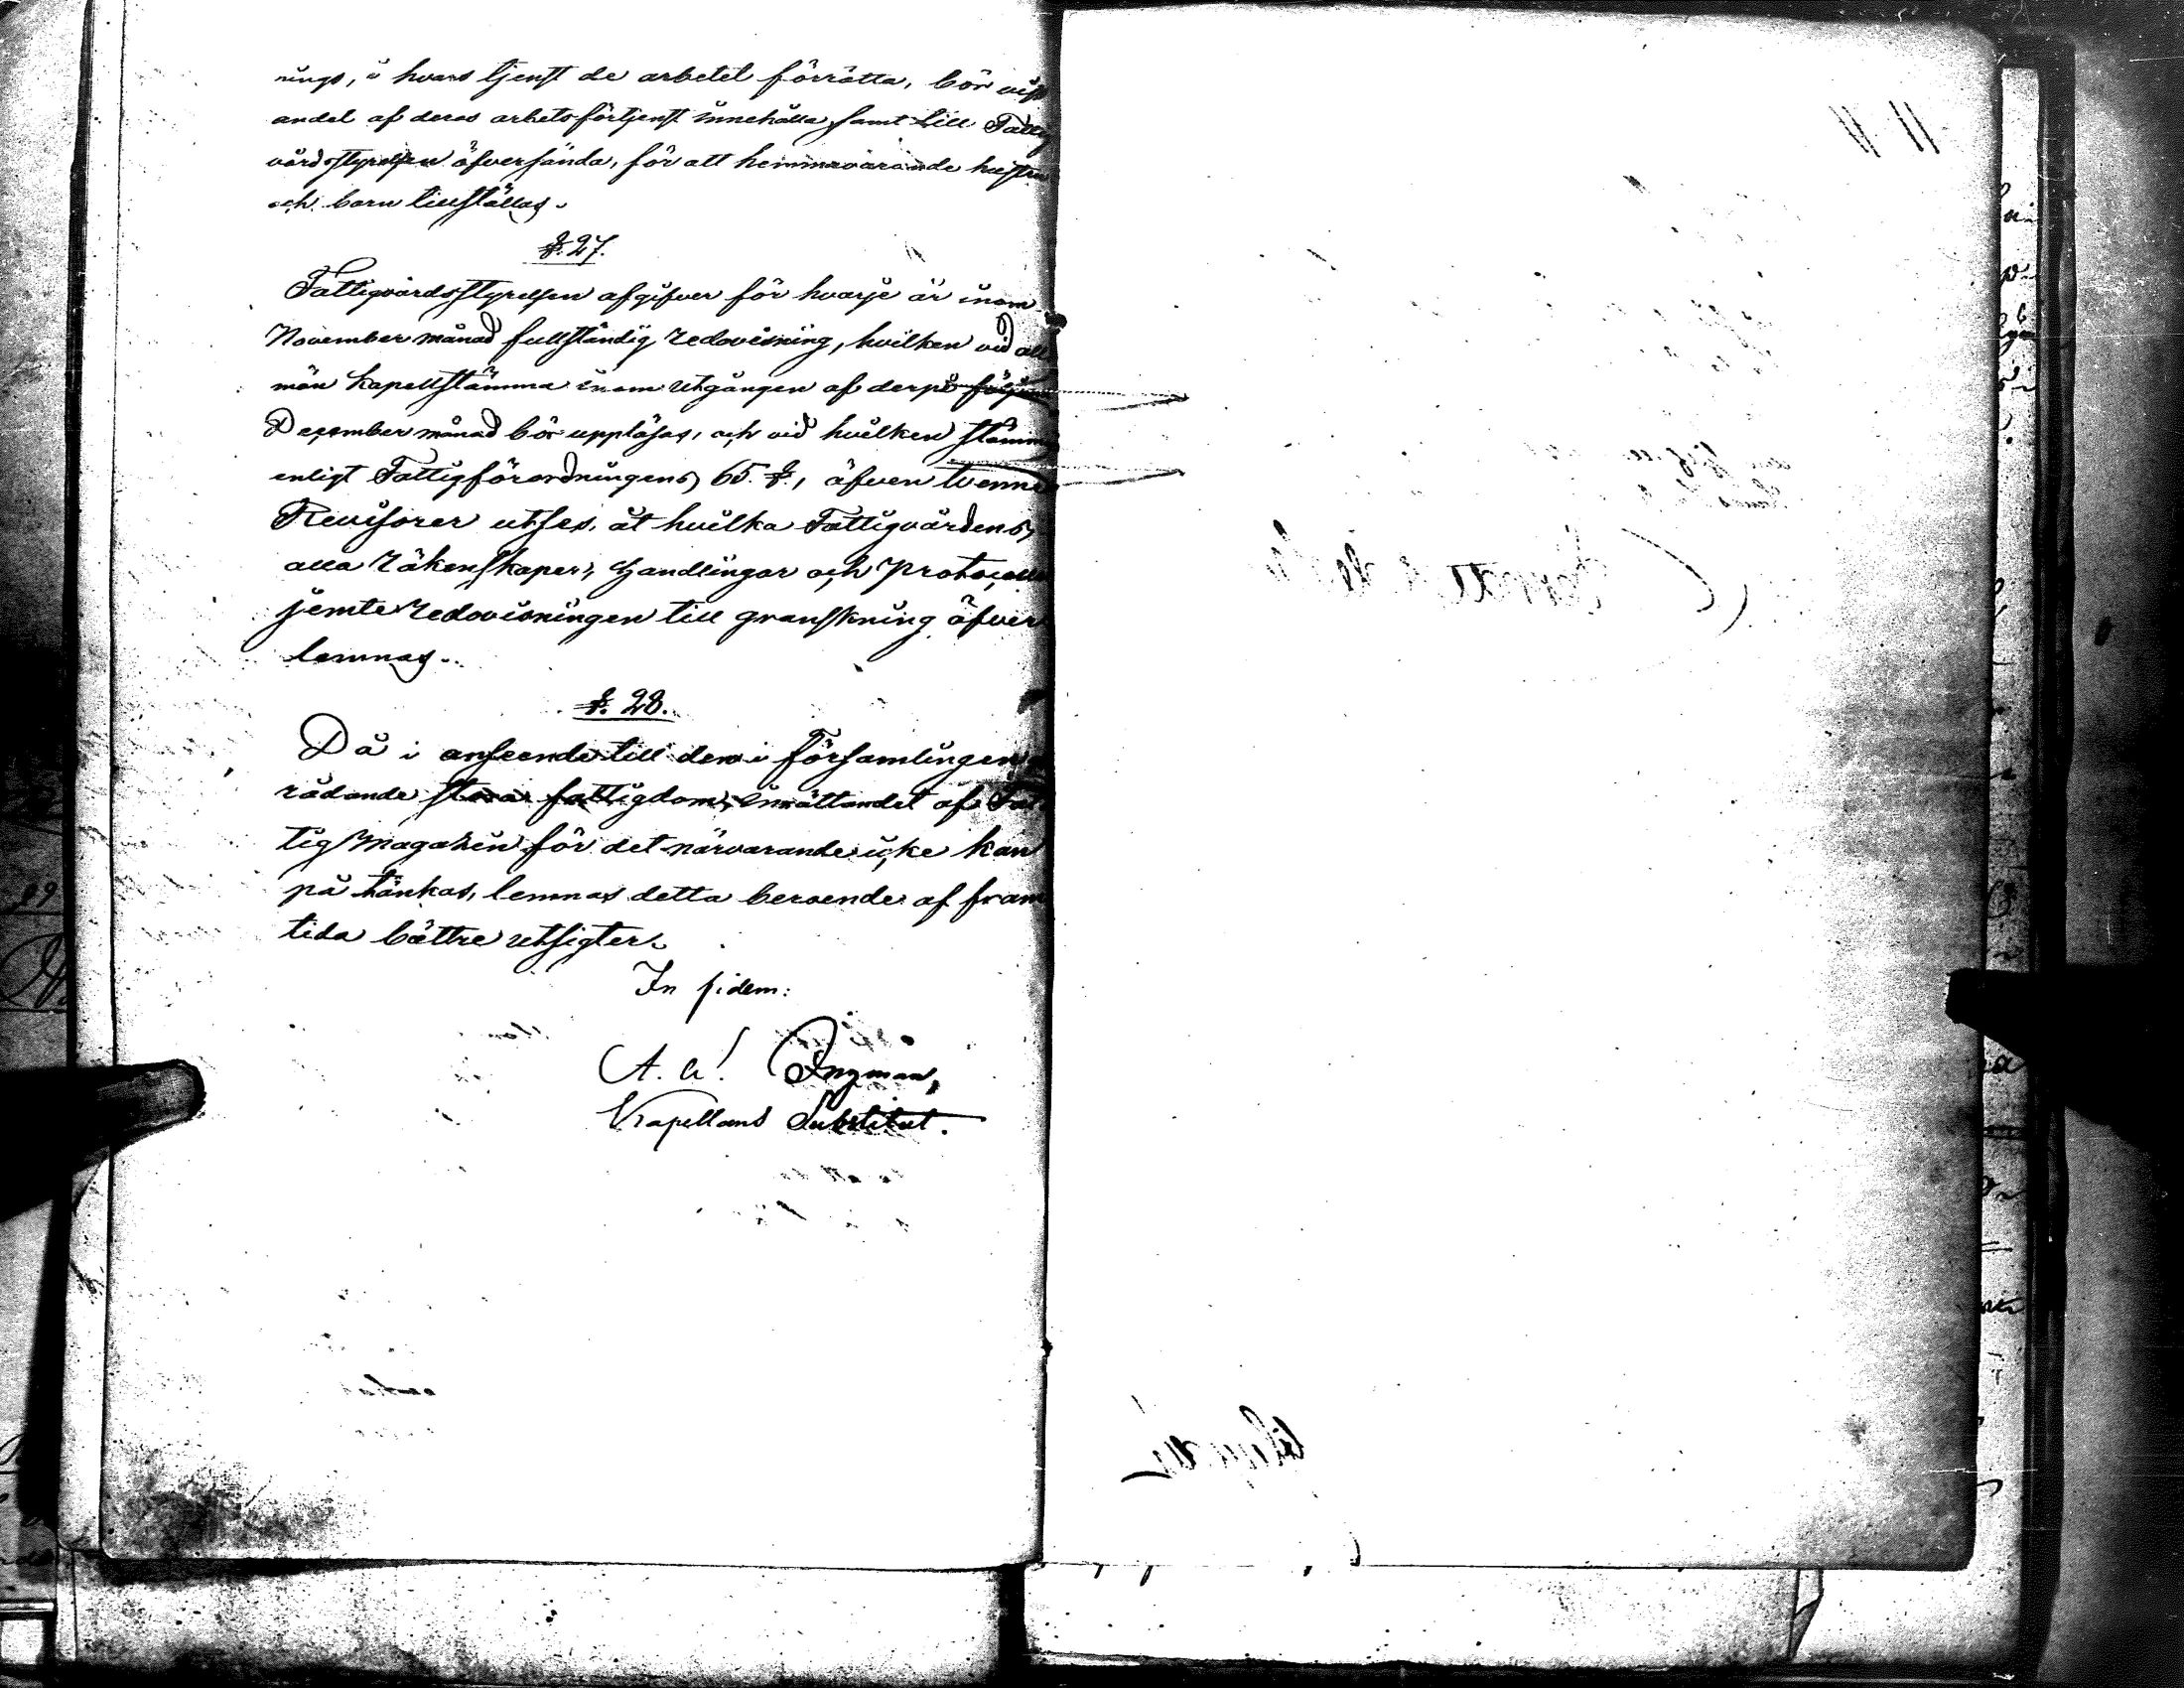 nings, i hvars tjenst de arbetet förrätta, bör viss
andel af deras arbetsförtjenst innehålla samt till Fattig
vårdsstyrelsen öfversända, för att hemmavarande hustru
och barn tillställas.
§. 27.
Fattigvårdsstyrelsen afgifver för hvarje år inom
November månad fullständig redovisning, hvilken vid all
män Kapellstämma inom utgången af derpå följan
December månad bör uppläsas, och vid hvilken stämma
enligt Fattigförordningens 65. §., äfven tvenne
Revisorer utses, åt hvilka Fattigvårdens
alla räkenskaper, Handlingar och Protocoller
jemte redovisningen till granskning öfver
lemnas.
§. 28.
Då i anseende till den i Församlingen
rådande stora fattigdom, inrättandet af Fat
tig Magazin för det närvarande icke kan
på tänkas, lemnas detta beroende af fram
tida bättre utsigter.
In fidem:
A. W. Ingman,
Kapellans Substitut.